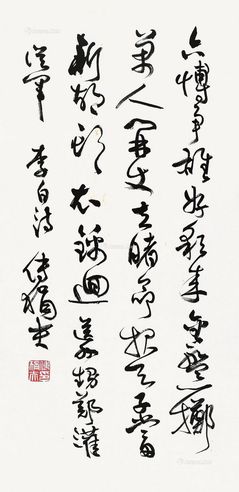 六博争雄好彩来金盤一擲
萬人開丈夫賭命報天子當
斬胡頭衣錦迴送甥鄭灌
從軍 李白詩 傅狷夫